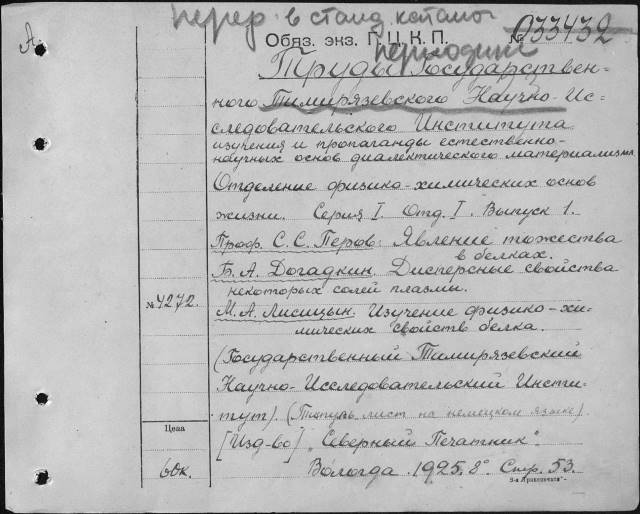 перер в станд каталог
периодики
Обяз. экз. Г. Ц. К. П. № 033432
А
Труды Государствен-
ного Тимирязевского Научно-Ис-
следовательского Института
изучения и пропаганды естественно-
научных основ диалектического материализма
Отделение физико-химических основ
жизни. Серия I. Отд. I. Выпуск 1.
Проф. С. С. Перов: Явление тожества
в белках.
Б. А. Догадкин. Дисперсные свойства
некоторых солей плазмы.
№ 4272.
М. А. Лисицын. Изучение физико-хи-
мических свойств белка.
(Государственный Тимирязевский
Научно-Исследовательский Инсти-
тут). (Титуль. лист на немецком языке).
Цена
[Изд-во] „Северный Печатник“.
60к.
Вологда. 1925. 8°. Стр. 53.